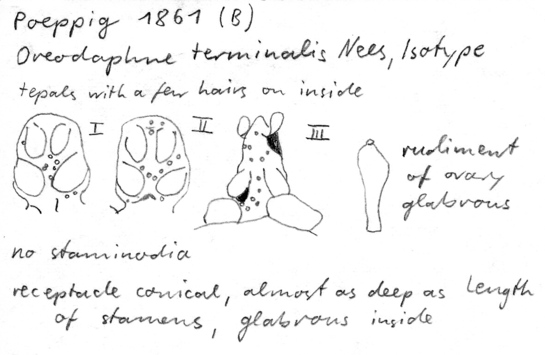 Poeppig 1861 (B)
Oreodaphne terminalis Nees, Isotype
tepals with a few hairs on inside
I II III
rudiment
of ovary
glabrous
no staminodia
receptacle conical, almost as deep as length
of stamens, glabrous inside